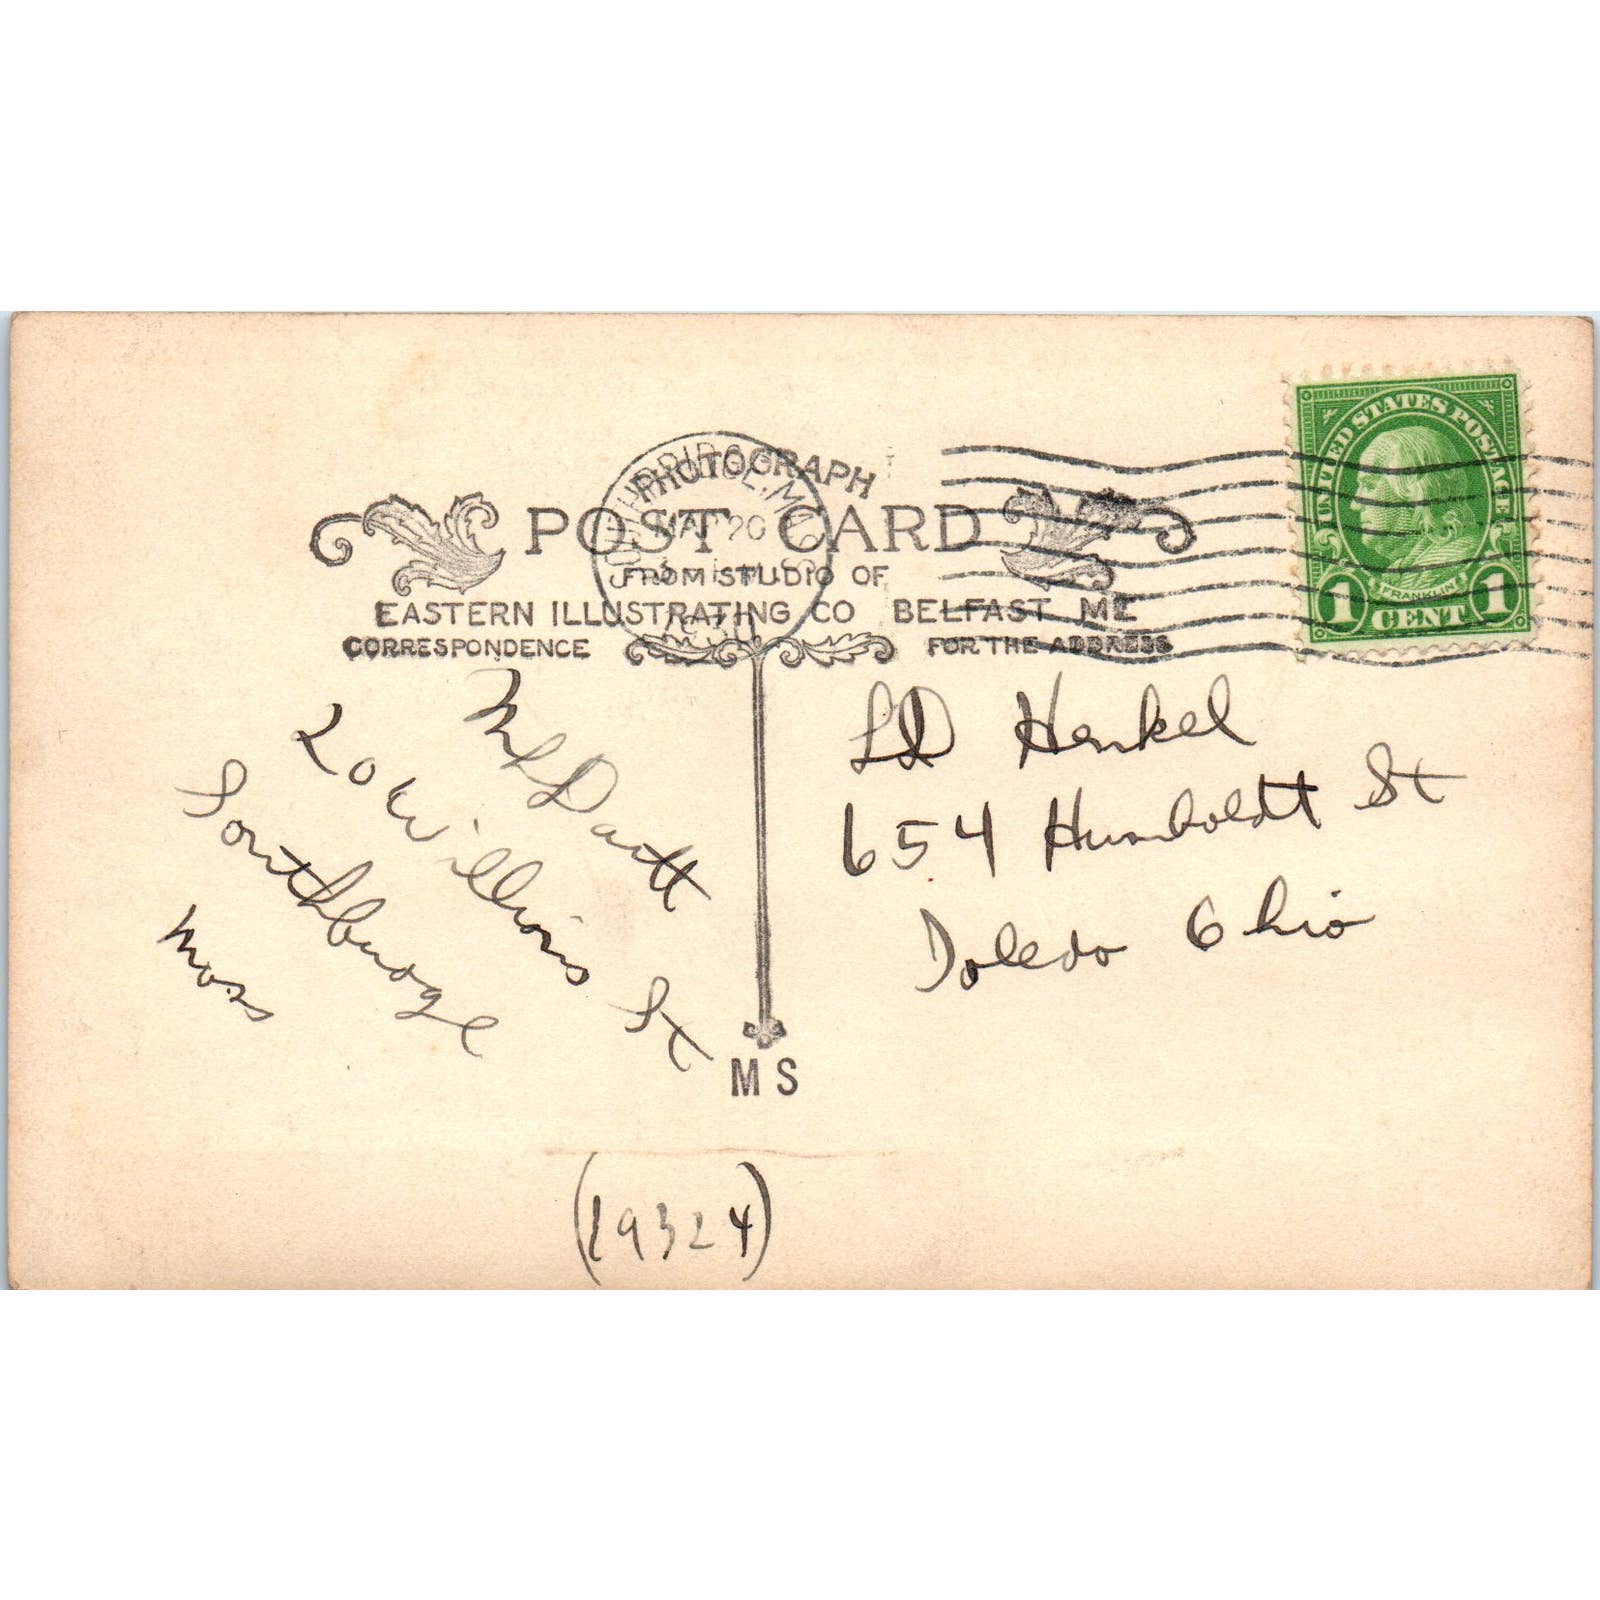 PHOTOGRAPH
POST CARD
FROM STUDIO OF
EASTERN ILLUSTRATING CO BELFAST ME
CORRESPONDENCE
FOR THE ADDRESS
UNITED STATES POSTAGE
FRANKLIN
1 CENT 1
20 Williams St
Southbridge
Mass
LD Henkel
654 Humboldt St
Toledo Ohio
MS
(19324)